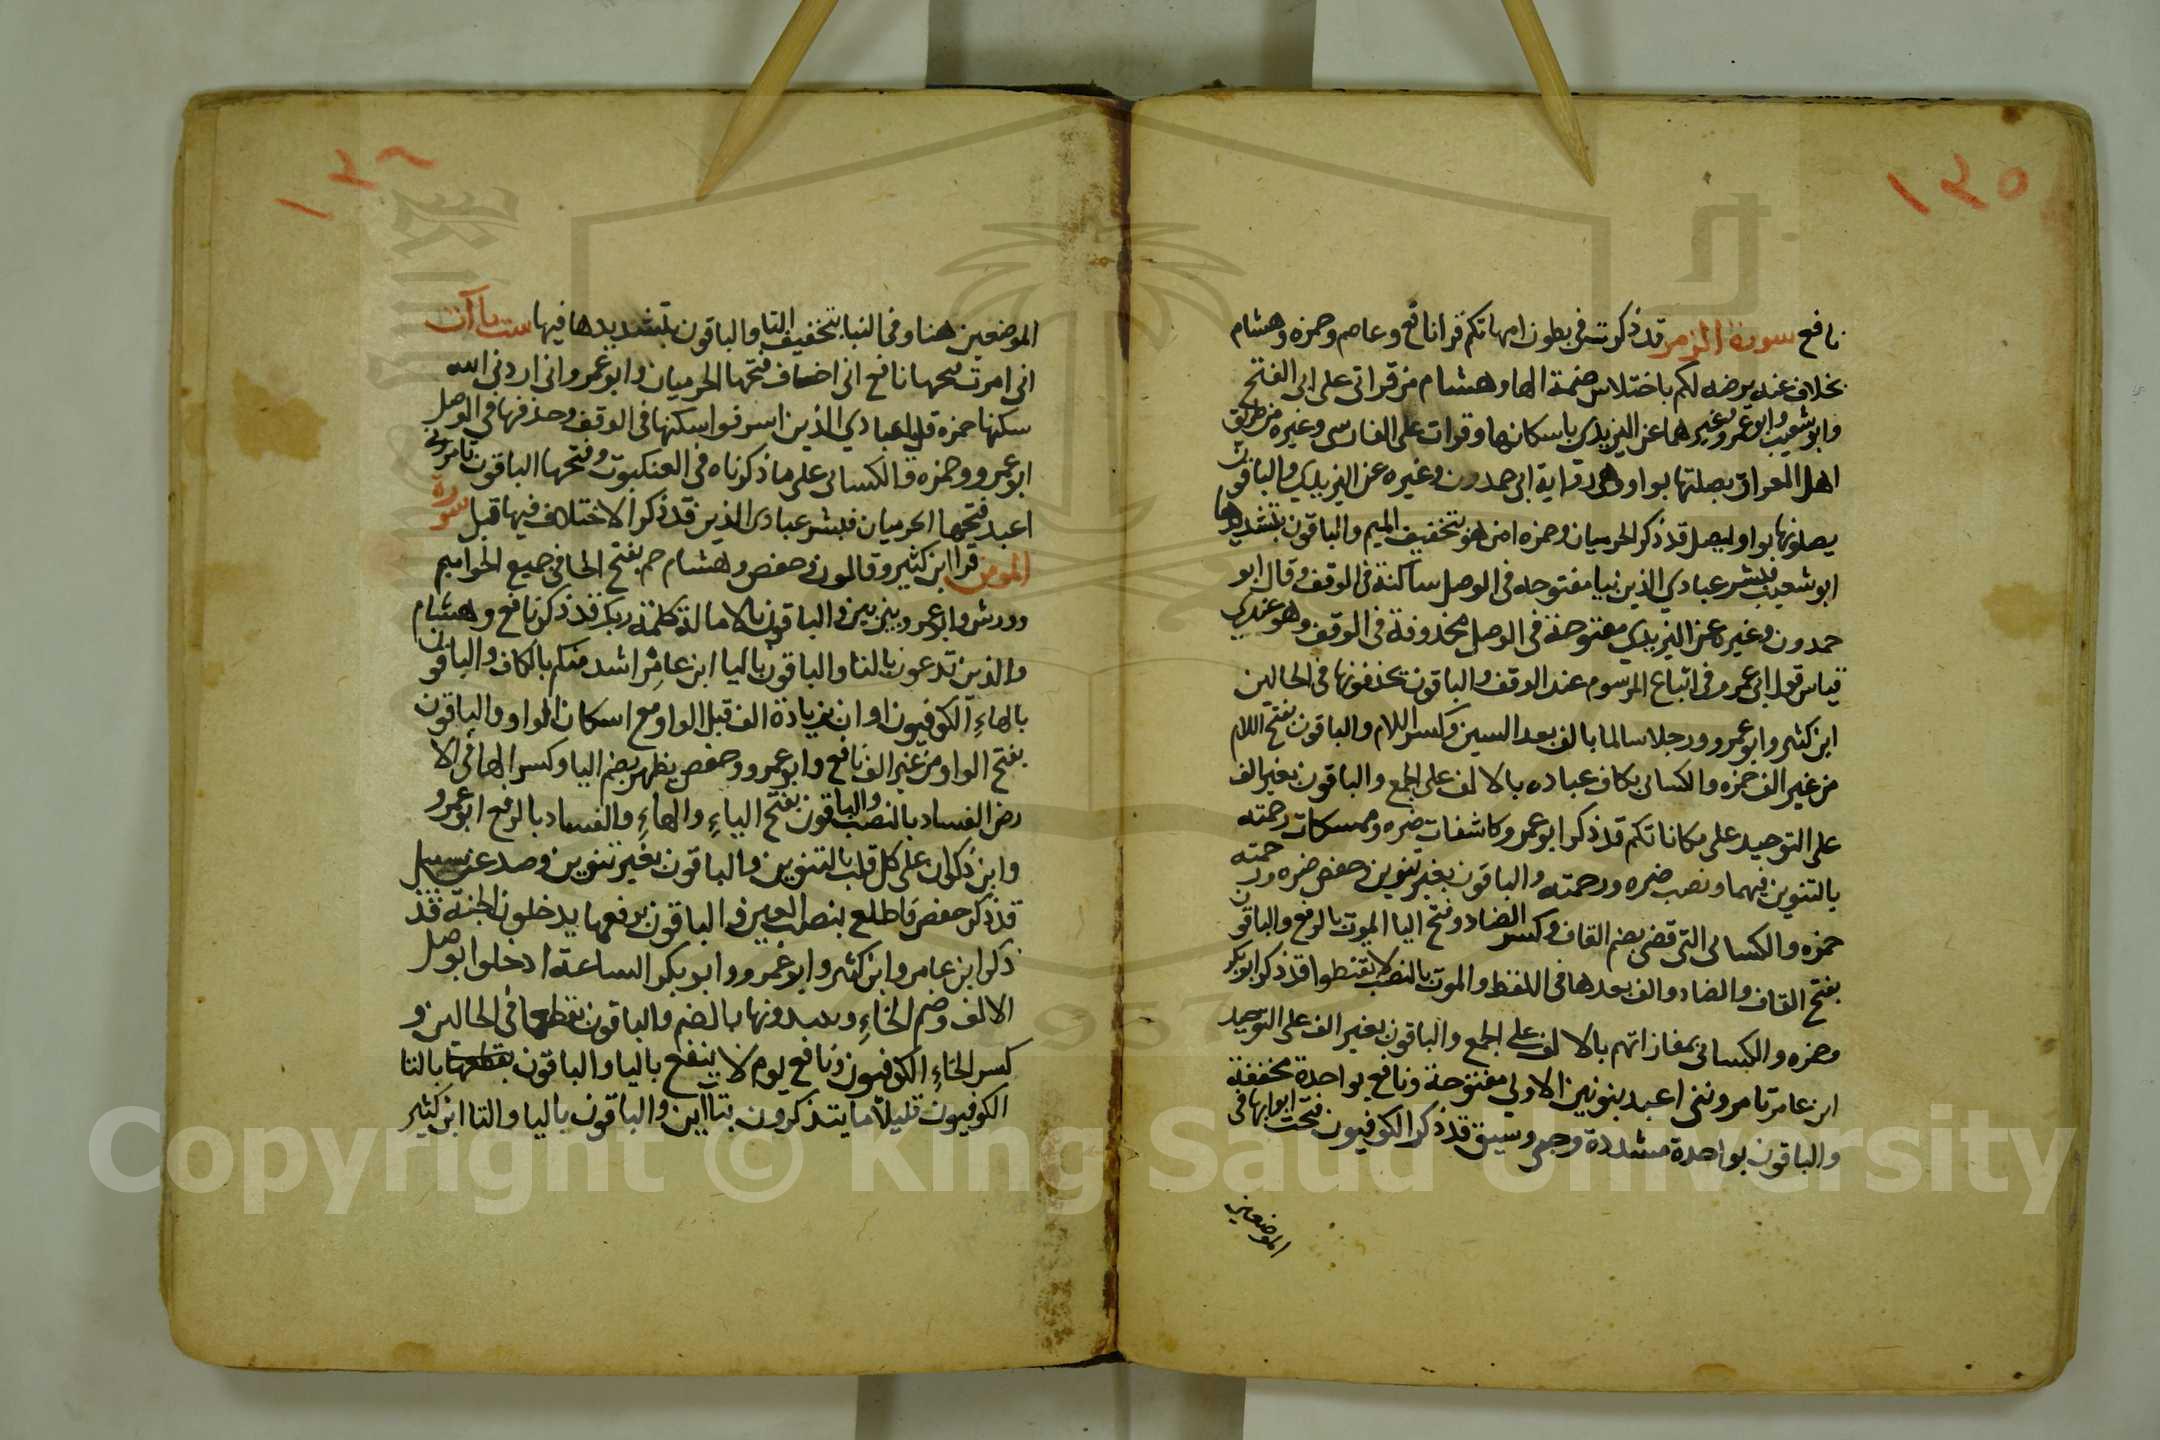 ١٢٥
نافع سورة الزمر قد ذكرت في بطون امهاتكم قرا نافع وعاصم وحمزه وهشام
بخلاف عنه يرضه لكم باختلاس ضمة الها وهشام من قراتي على ابي الفتح
وابو شعيب وابو عمرو وغيرهما عن اليزيدي باسكانها وقرات على الفارسي وغيره من طريق
اهل العراق بصلتها بواو وهي رواية ابي حمدون وغيره عن اليزيدي والباقون
يصلونها بواو ليضل قد ذكر الحرميان وحمزه امن هو بتخفيف الميم والباقون بتشديدها
ابو شعيب فبشر عبادي الذين بيا مفتوحه في الوصل ساكنة في الوقف وقال ابو
حمدون وغيره عن اليزيدي مفتوحة في الوصل محذوفة في الوقف وهو عندي
قياس قول ابي عمرو في اتباع المرسوم عند الوقف والباقون بحذفونها في الحالين
ابن كثير وابو عمرو ورجلا سالما بالف بعد السين وكسر اللام والباقون بفتح اللام
من غير الف حمزه والكسائي بكاف عباده بالالف على الجمع والباقون بغير الف
على التوحيد على مكاناتكم قد ذكر ابو عمرو كاشفات ضره وممسكات رحمته
بالتنوين فيهما ونصب ضره ورحمته والباقون بغير تنوين وخفض ضره ورحمته
حمزه والكسائي التي قضى بضم القاف وكسر الضاد وفتح اليا الموت بالرفع والباقون
بفتح القاف والضاد والف بعدها في اللفظ والموت بالنصب لا تقنطوا قد ذكر ابو بكر
وحمزه والكسائي بمفازاتهم بالالف على الجمع والباقون بغير الف على التوحيد
ابن عامر تامرونني اعبد بنونين الاولي مفتوحة ونافع بواحدة مخففة
والباقون بواحدة مشددة وجى وسيق قد ذكر الكوفيون فتحت ابوابها في
الموضعين
١٢٦
الموضعين هنا وفي النبا بتخفيف التا والباقون بتشديدها فيها ست ياآت
اني امرت فتحها نافع اني اخاف فتحها الحرميان وابو عمرو اني ارادني الله
سكنها حمزه قل يا عبادي الذين اسرفوا اسكنها في الوقف وحذفها في الوصل
ابو عمرو وحمزه والكسائي على ما ذكرناه في العنكبوت وفتحها الباقون تامروني
اعبد فتحها الحرميان فبشر عبادي الذين قد ذكر الاختلاف فيها قبل سورة
المومن قرا ابن كثير وقالون وحفص وهشام حم بفتح الحا في جميع الحواميم
وورش وابو عمرو بين بين والباقون بالامالة كلمة ربك قد ذكر نافع وهشام
والذين تدعون بالتا والباقون باليا ابن عامر اشد منكم بالكاف والباقون
بالهاءِ الكوفيون او ان بزيادة الف قبل الواو مع اسكان الواو والباقون
بفتح الواو من غير الف نافع وابو عمرو وحفص يظهر بضم اليا وكسر الها في الا
رض الفساد بالنصب والباقون بفتح الياءِ والهاءِ والفساد بالرفع ابو عمرو
وابن ذكوان على كل قلب بالتنوين والباقون بغير تنوين وصد عن سبيل
قد ذكر حفص فاطلع بنصب العين والباقون برفعها يدخلون الجنة قد
ذكر ابن عامر وابن كثير وابو عمرو وابو بكر الساعة ادخلوا بوصل
الالف وضم الخاءِ ويبدونها بالضم والباقون بقطعها في الحالين و
كسر الخاءِ الكوفيون ونافع يوم لا ينفع باليا والباقون بالتا
الكوفيون قليلا ما يتذكرون بتاآين والباقون باليا والتا ابن كثير
Copyright © King Saud University
1957